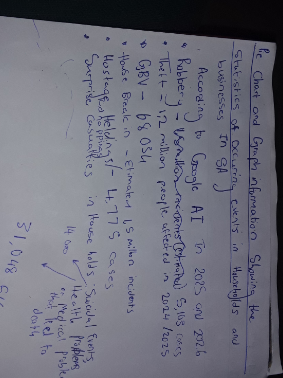 Pie Chart and Graph information Showing the
Statistics of occuring events in Households and
businesses in SA
According to Google AI in 2025 and 2026
• Robbery - 5,108 cases
• Theft - 1,2 million people affected in 2024/2025
• GBV - 68 034
• House Break in - Etimated 1,5 million incidents
• Hostage Holdings/ - 4 775 cases
Kidnappings
• Surprise Casualties in House holds - Suicidal
14 000
Health problems
or medical problems
that led to
death
31,048